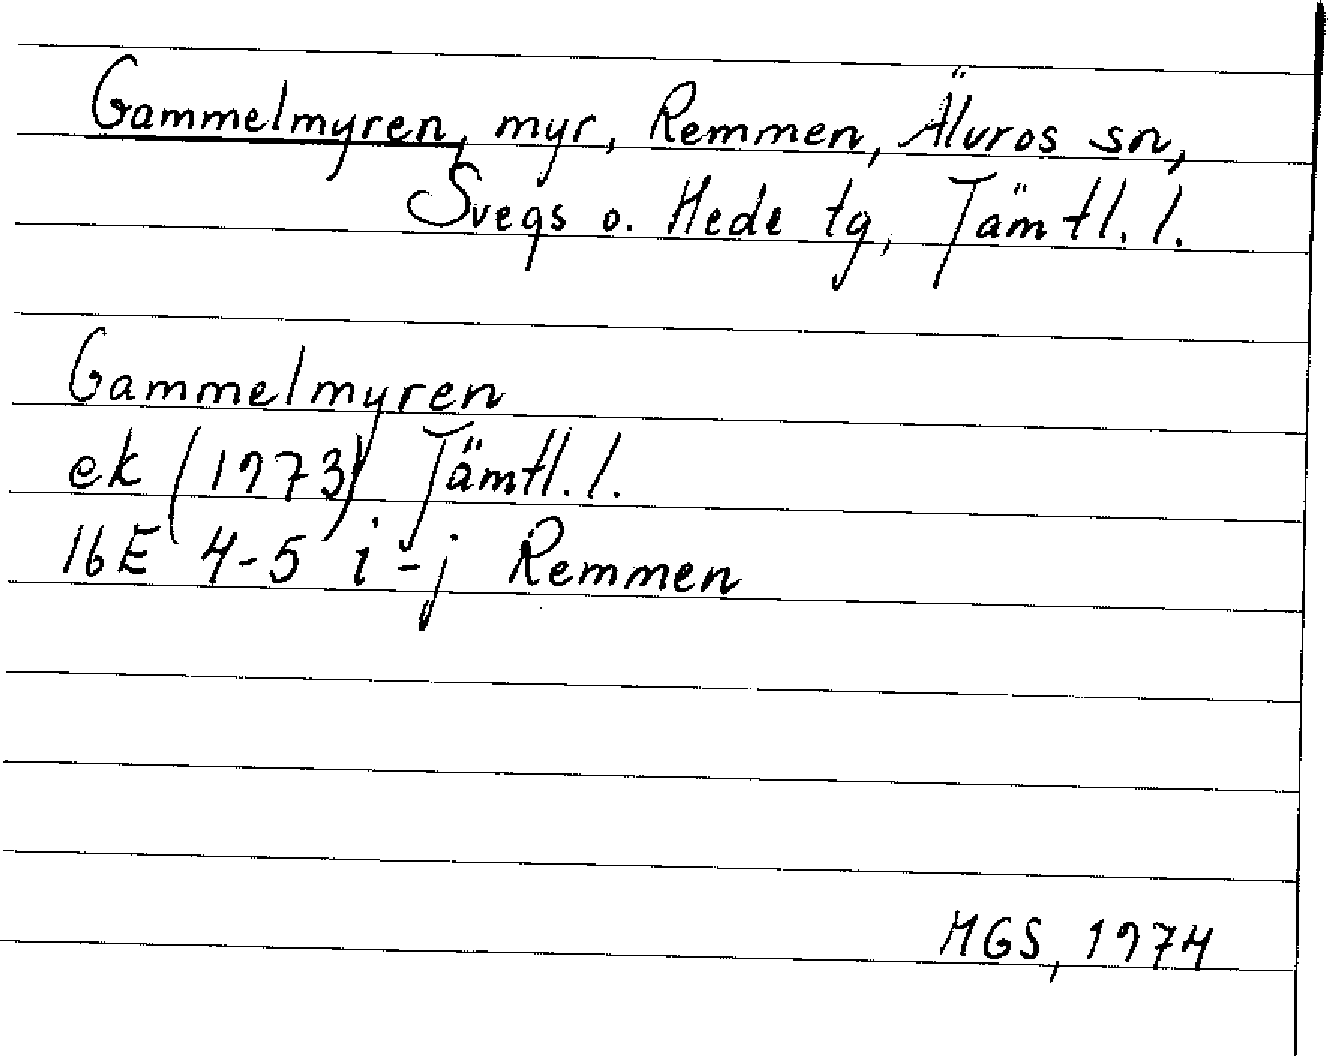 Gammelmyren, myr, Remmen, Älvros sn,
Svegs o. Hede tg, Jämtl. l.
Gammelmyren
ek (1973) Jämtl. l.
16E 4-5 i-j Remmen
MGS, 1974